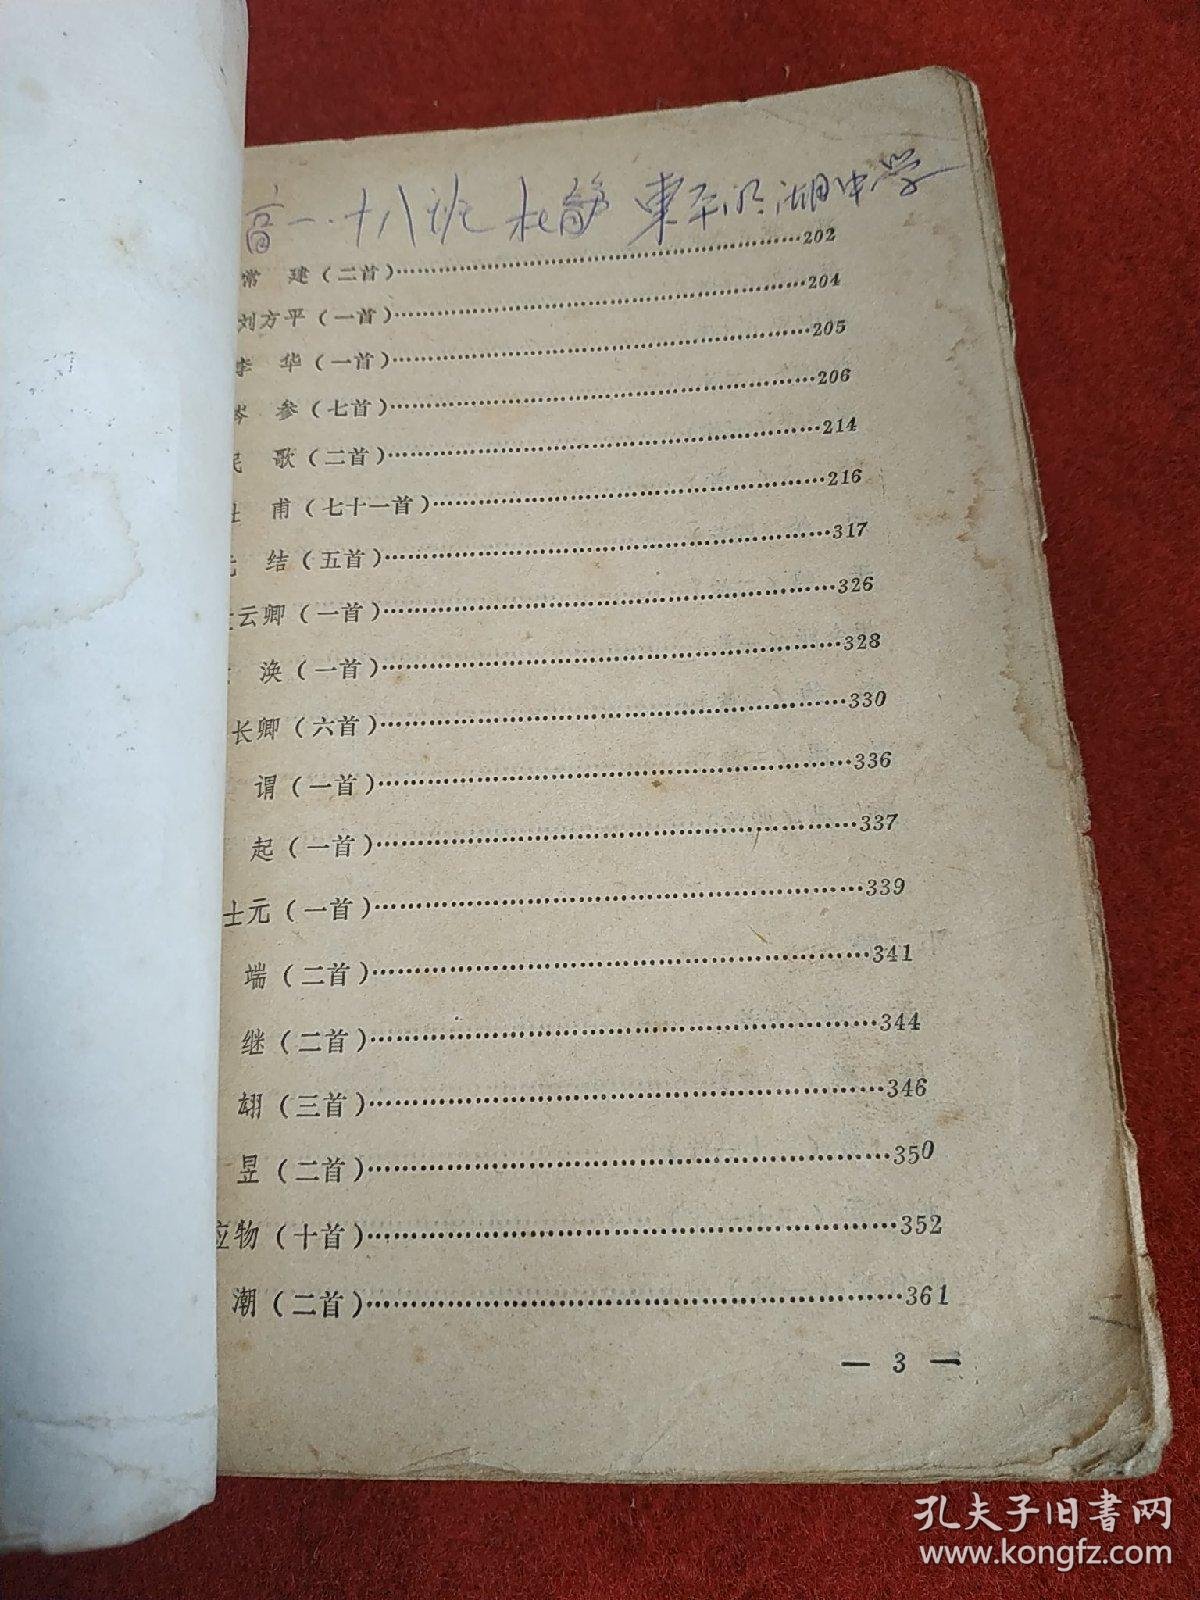 高一·十八班 杜鹃 東平明湖中学
常 建(二首)…………202
刘方平(一首)…………204
李 华(一首)…………205
岑 参(七首)…………206
民 歌(二首)…………214
杜 甫(七十一首)…………216
元 结(五首)…………317
云卿(一首)…………326
涣(一首)…………328
长卿(六首)…………330
谓(一首)…………336
起(一首)…………337
士元(一首)…………339
端(二首)…………341
继(二首)…………344
翃(三首)…………346
昱(二首)…………350
应物(十首)…………352
潮(二首)…………361
— 3 —
孔夫子旧書网
www.kongfz.com